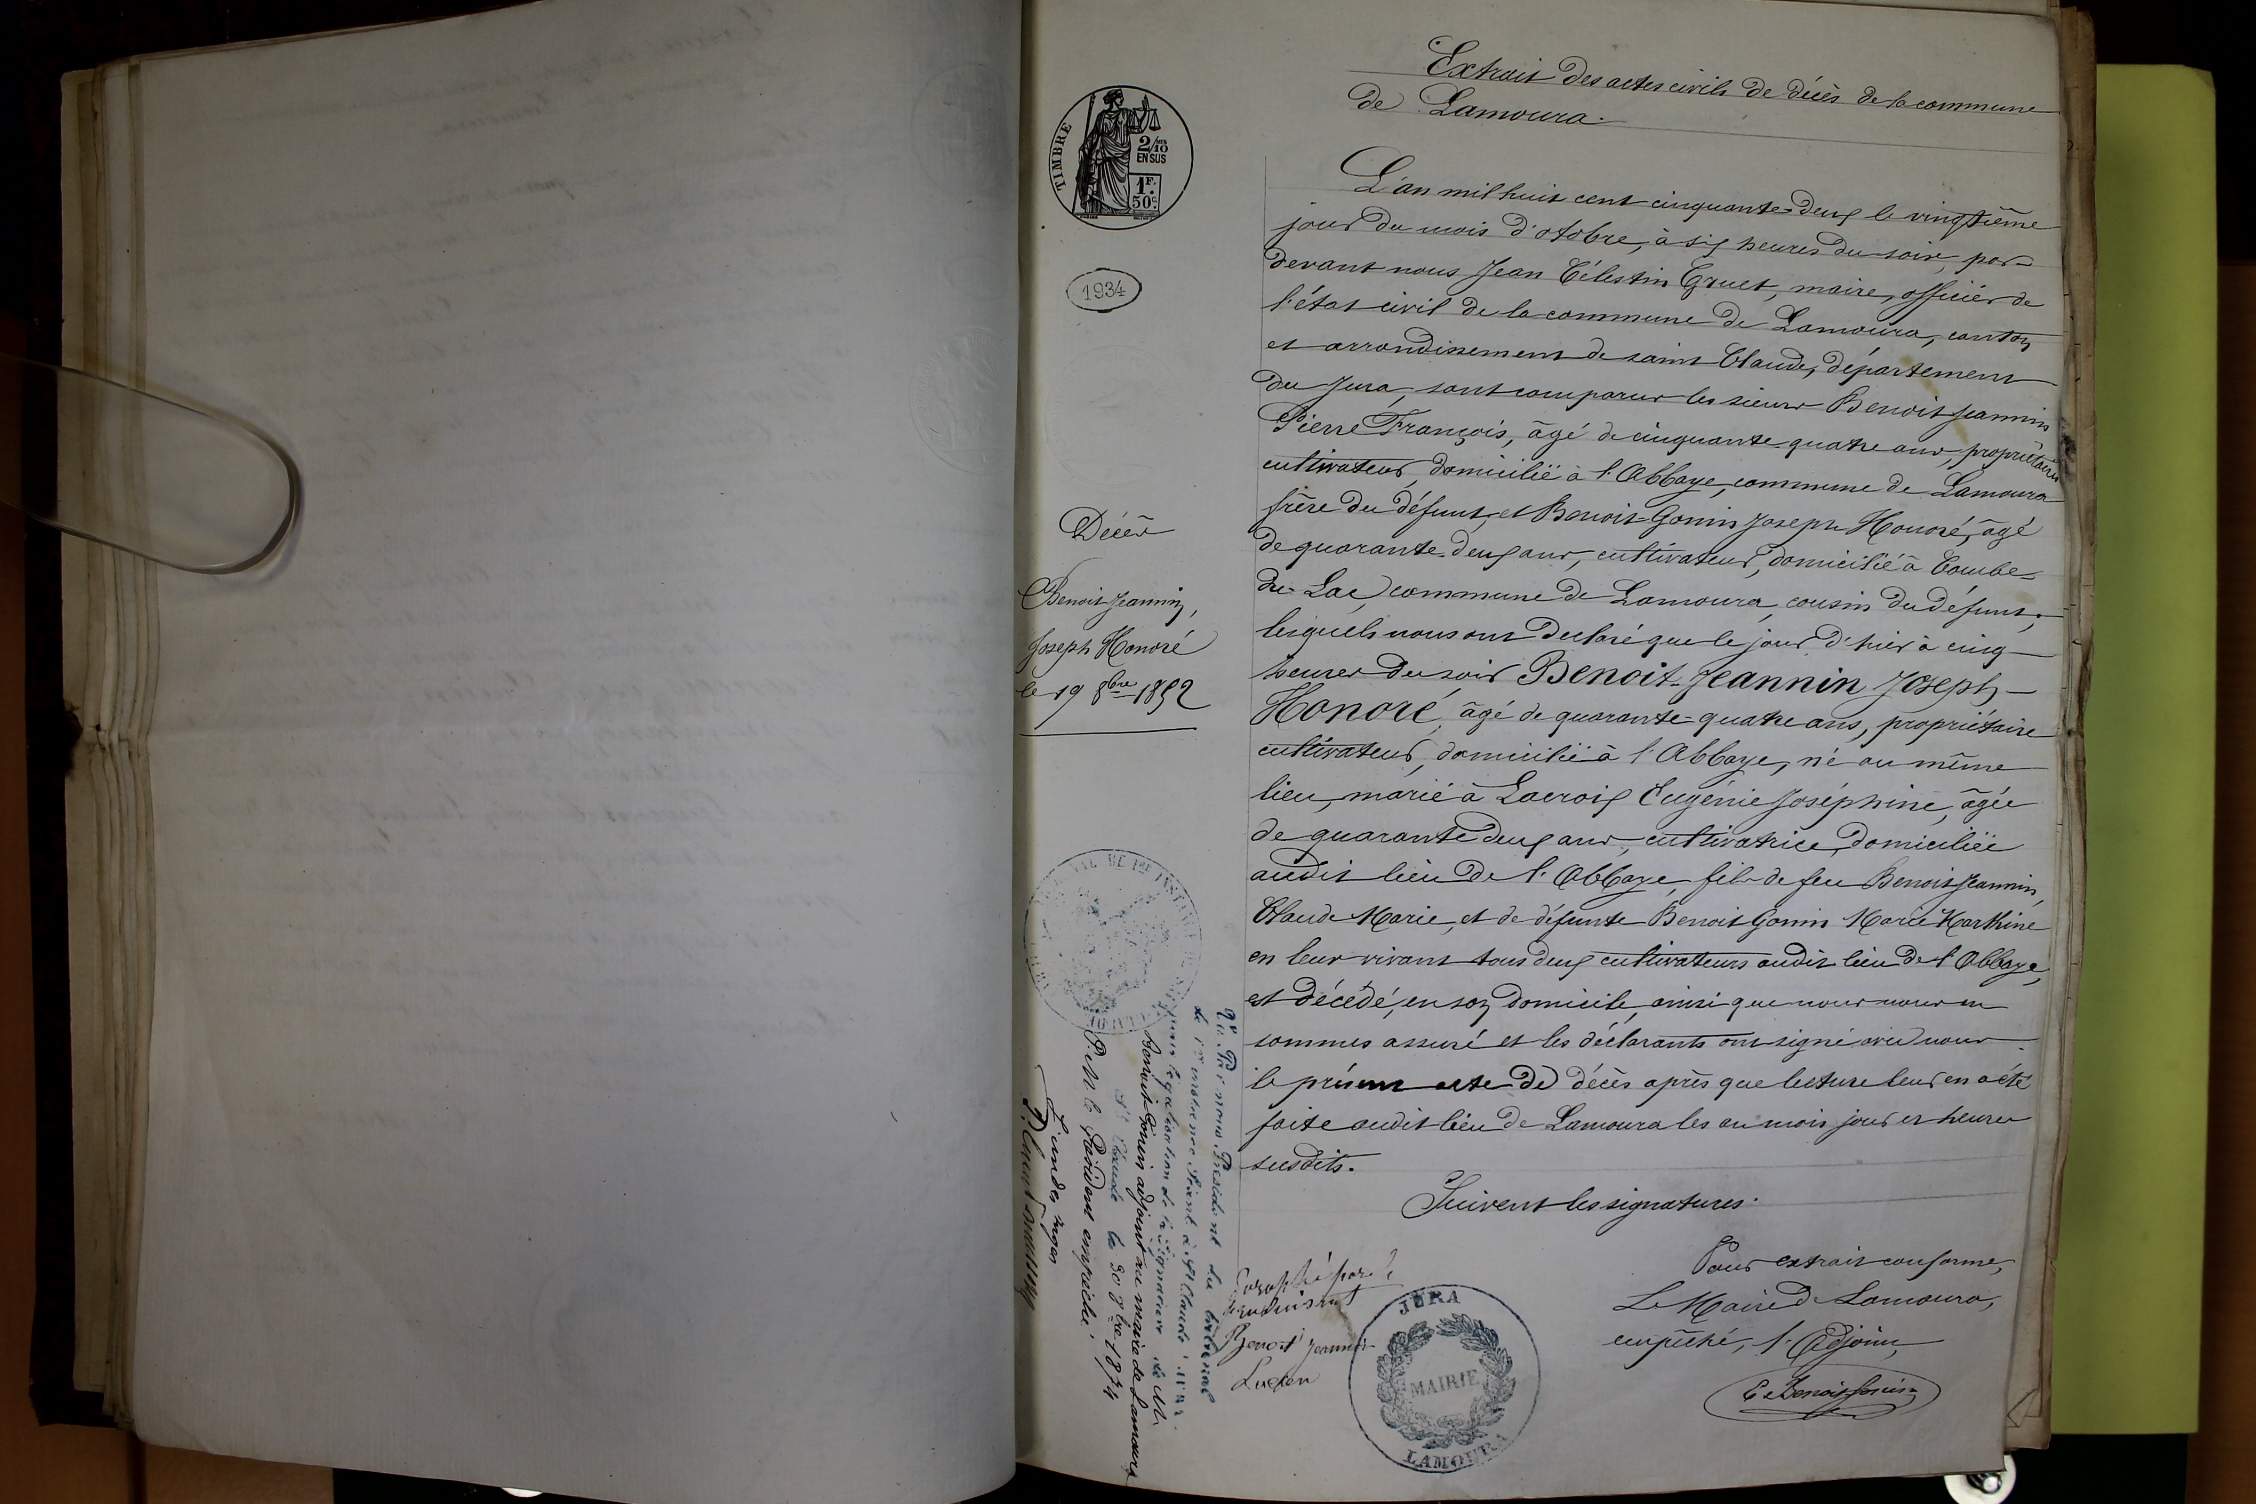 Extrait des actes civils de décès de la commune
de Lamoura.
TIMBRE
2/10
EN SUS
1F.
50c.
1934
L'an mil huit cent cinquante-deux le vingtième
jour du mois d'otobre, à six heures du soir, par-
devant nous Jean Célestin Gruet, maire, officier de
l'état civil de la commune de Lamoura, canton
et arrondissement de saint Claude, département
du Jura, sont comparus les sieurs Benoit Jeannin
Pierre François, âgé de cinquante-quatre ans, propriétaire
cultivateur, domicilié à l'Abbaye, commune de Lamoura
frère du défunt, et Benoit-Gonin Joseph Honoré, âgé
de quarante-deux ans, cultivateur, domicilié à Combe-
du-Lac, commune de Lamoura, cousin du défunt;
lesquels nous ont déclaré que le jour d'hier à cinq
heures du soir Benoit-Jeannin Joseph
Honoré, âgé de quarante-quatre ans, propriétaire
cultivateur, domicilié à l'Abbaye, né au même
lieu, marié à Lacroix Eugénie Joséphine, âgée
de quarante deux ans, cultivatrice, domiciliée
audit lieu de l'Abbaye, fils de feu Benoit Jeannin,
Claude Marie, et de défunte Benoit Gonin Marie Marthine
en leur vivant tous deux cultivateurs audit lieu de l'Abbaye,
est décédé, en son domicile, ainsi que nous nous en
sommes assuré et les déclarants ont signé avec nous
le présent acte de décès après que lecture leur en a été
faite audit lieu de Lamoura les an mois jour et heures
susdits.
Suivent les signatures.
Pour extrait conforme,
Le Maire de Lamoura,
empêché, l'Adjoint,
Benoit Gonin
Décès
Benoit Jeannin,
Joseph Honoré
le 19 8bre 1852
Vu Par nous Président du tribunal
de 1re instance séant à St Claude Jura
pour légalisation de la signature de M.
Benoit-Gonin adjoint au maire de Lamoura
St Claude le 30 9bre 1874
P. M. le Président empêché
L'un des juges
Paraphé par le
Benoit Jeannin
Lucien
JURA
MAIRIE
LAMOURA